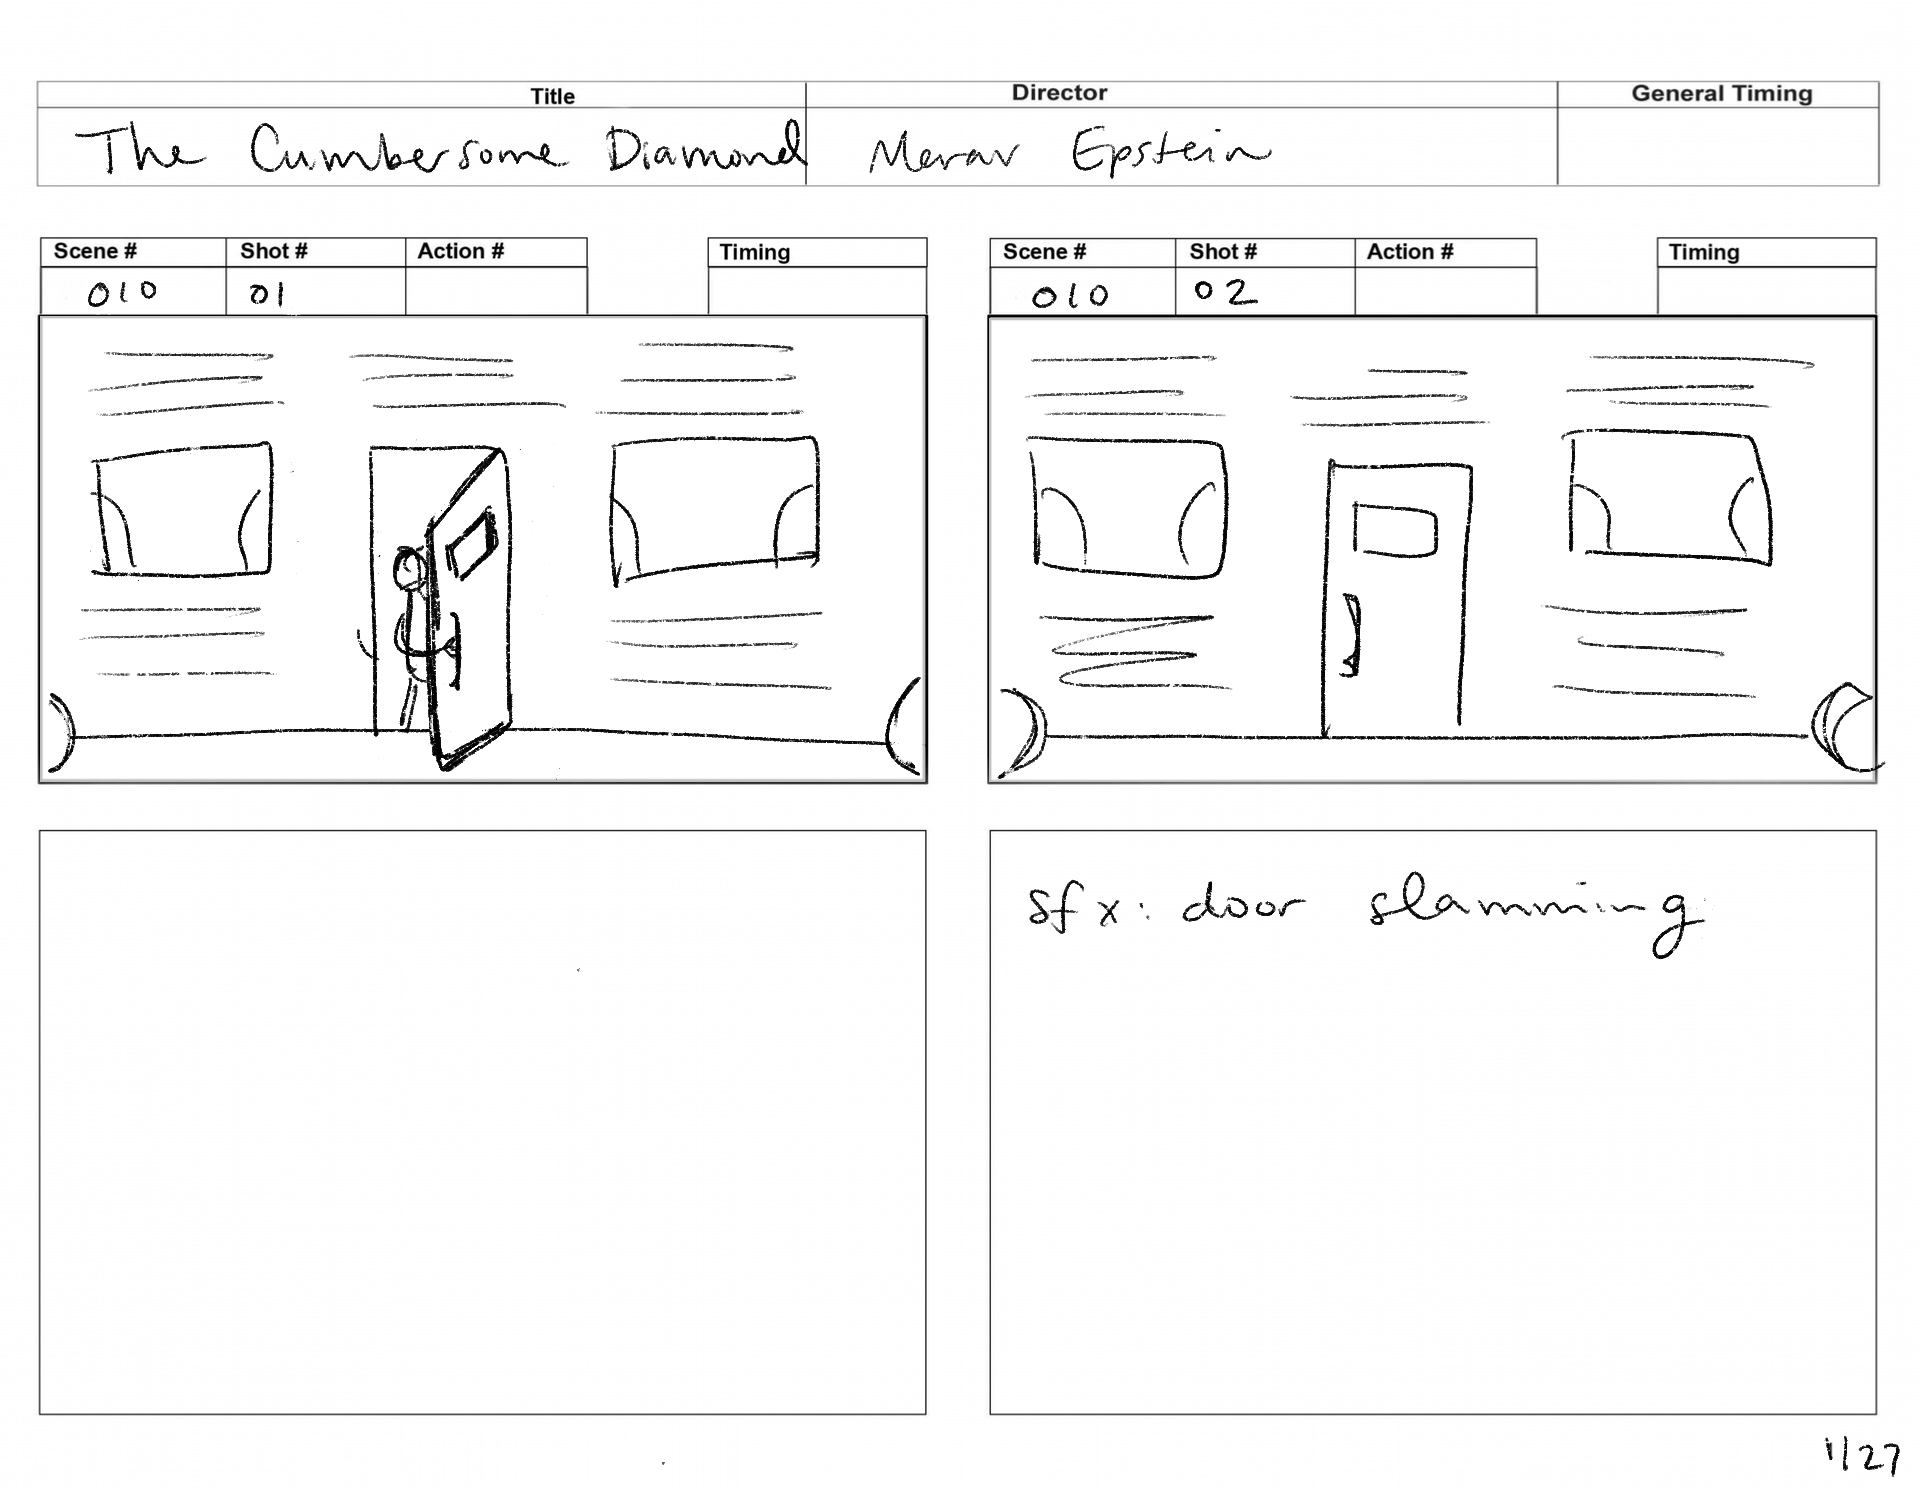 Title Director General Timing
The Cumbersome Diamond Merav Epstein
Scene # Shot # Action # Timing
010 01
Scene # Shot # Action # Timing
010 02
sfx: door slamming
1/27